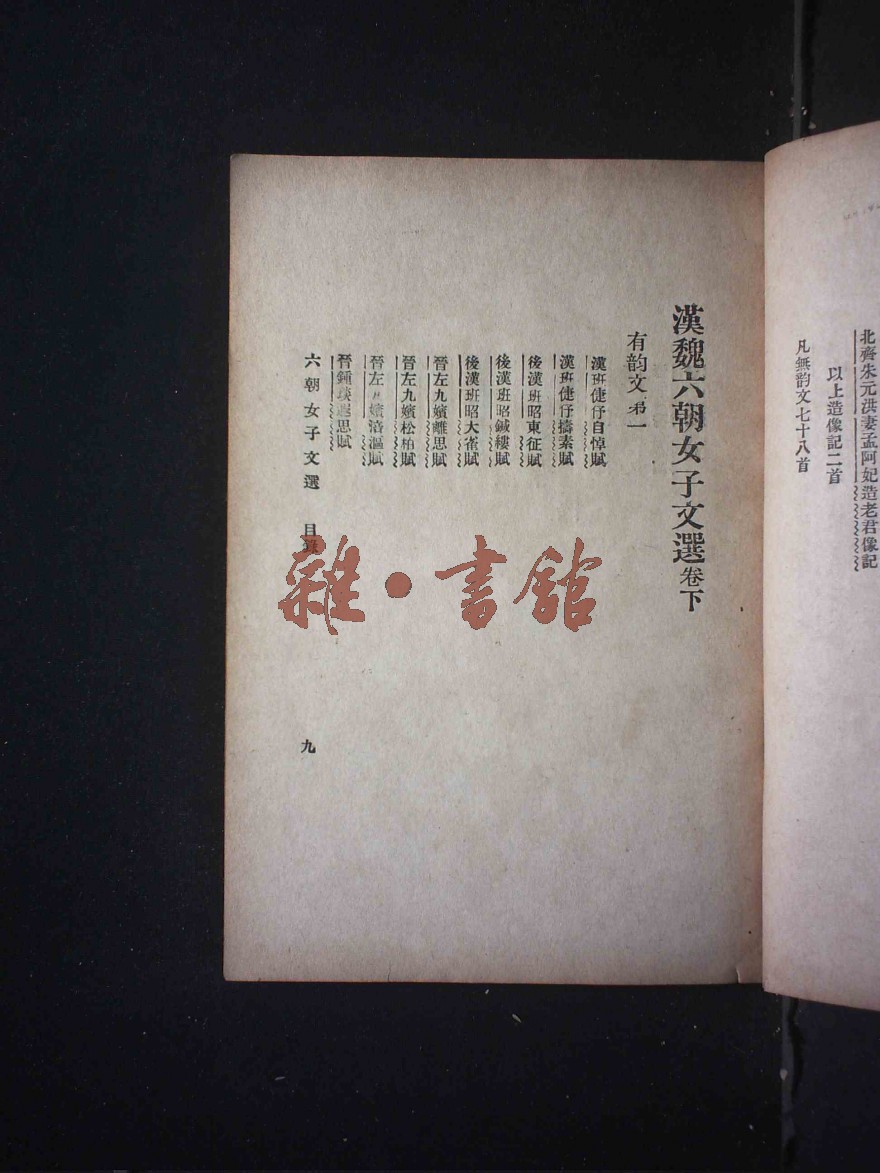 北齊朱元洪妻孟阿妃造老君像記
以上造像記二首
凡無韵文七十八首
漢魏六朝女子文選卷下
有韵文 弟一
漢班倢伃自悼賦
漢班倢伃擣素賦
後漢班昭東征賦
後漢班昭鍼縷賦
後漢班昭大雀賦
晉左九嬪離思賦
晉左九嬪松柏賦
晉左九嬪涪漚賦
晉鍾琰遐思賦
六朝女子文選 目錄
九
雜·書館